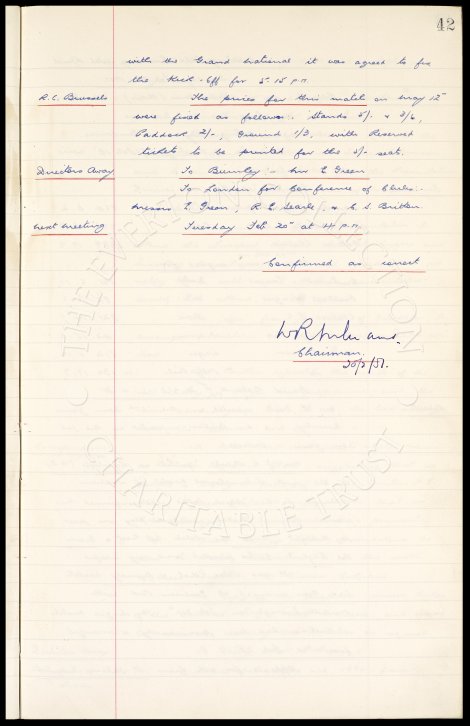 42
with the Grand National it was agreed to fix
the Kick-Off for 5.15 p.m.
R.C. Brussels The prices for this match on May 12th
were fixed as follows: Stands 5/- & 3/6,
Paddock 2/-, Ground 1/3, with Reserved
tickets to be printed for the 5/- seat.
Directors Away To Burnley - Mr E Green
To London for Conference of Clubs:-
Messrs E. Green, R.E. Searle, & C.S. Britten
Next Meeting Tuesday Feb 20th at 4 p.m.
Confirmed as correct
Chairman.
20/2/51.
THE EVERTON COLLECTION
CHARITABLE TRUST